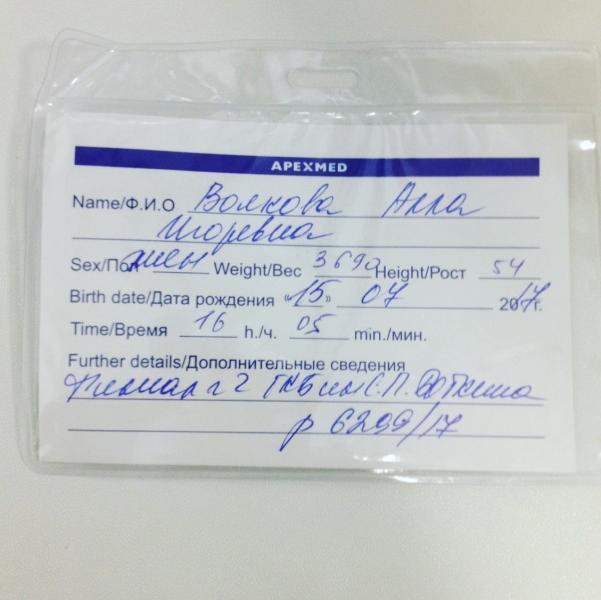 APEXMED
Name/Ф.И.О Волкова Алла
Игоревна
Sex/Пол жен Weight/Вес 3690 Height/Рост 54
Birth date/Дата рождения «15» 07 2017г.
Time/Время 16 h./ч. 05 min./мин.
Further details/Дополнительные сведения
Филиал г 2 ГКБ им С.П. Боткина
р 6299/17